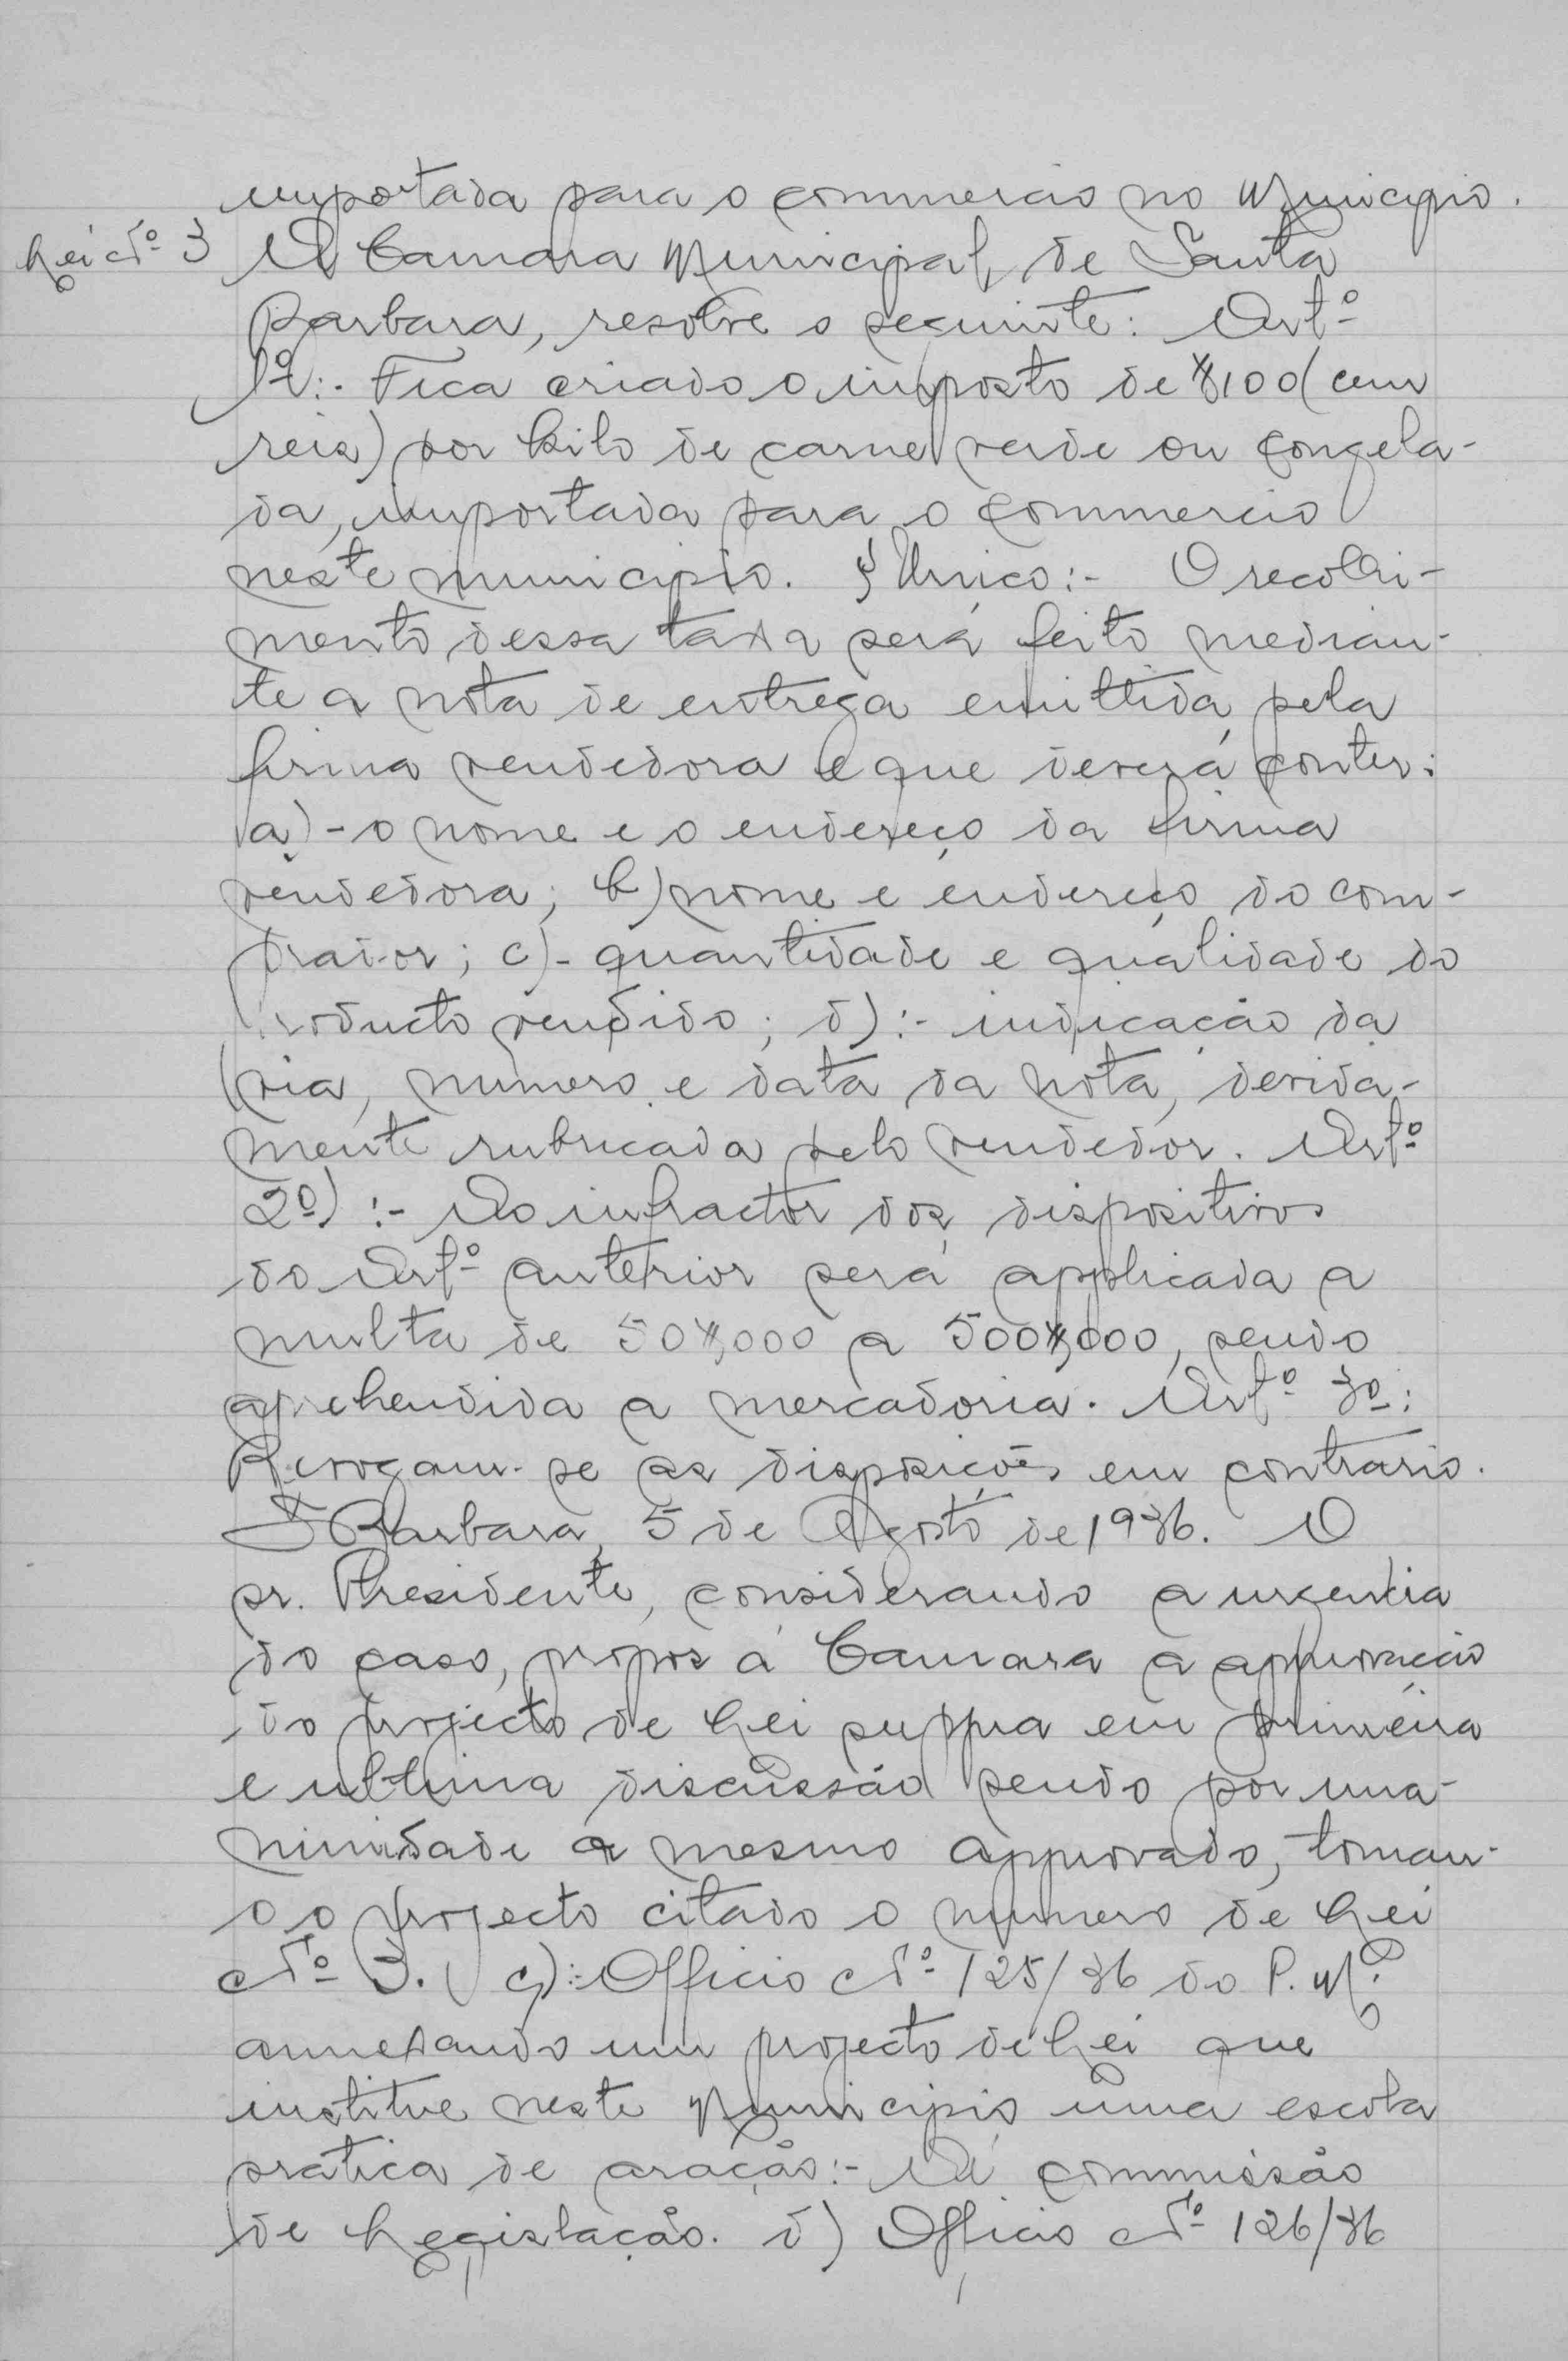 importada para o commercio no Municipio.
Lei Nº 3 A Camara Municipal, de Santa
Barbara, resolve o seguinte: Artº
1º:- Fica criado o imposto de $100 (cem
reis) por kilo de carne verde ou congela-
da, importada para o commercio
neste municipio. § Unico:- O recolhi-
mento dessa taxa será feito median-
te a nota de entrega emittida pela
firma vendedora e que deverá conter:
a)-o nome e o endereço da firma
vendedora; b) nome e endereço do com-
prador; c)- quantidade e qualidade do
producto vendido; d):- indicação da
via, numero e data da nota, devida-
mente rubricada pelo vendedor. Artº
2º) :- Ao infractor dos dispositivos
do Artº anterior será applicada a
multa de 50$000 a 500$000, sendo
aprehendida a mercadoria. Artº 3º:
Revogam-se as disposições em contrario.
S. Barbara, 5 de Agosto de 1936. O
sr. Presidente, considerando a urgencia
do caso, propos á Camara a approvação
do projecto de Lei suppra em primeira
e ultima discussão sendo por una-
nimidade o mesmo approvado, toman-
do o projecto citado o numero de Lei
Nº 3. c):- Officio Nº 125/36 do P. Mal.
annexando um projecto de Lei que
institue neste Municipio uma escola
pratica de aração:- Á commissão
de Legislação. d) Officio Nº 126/36